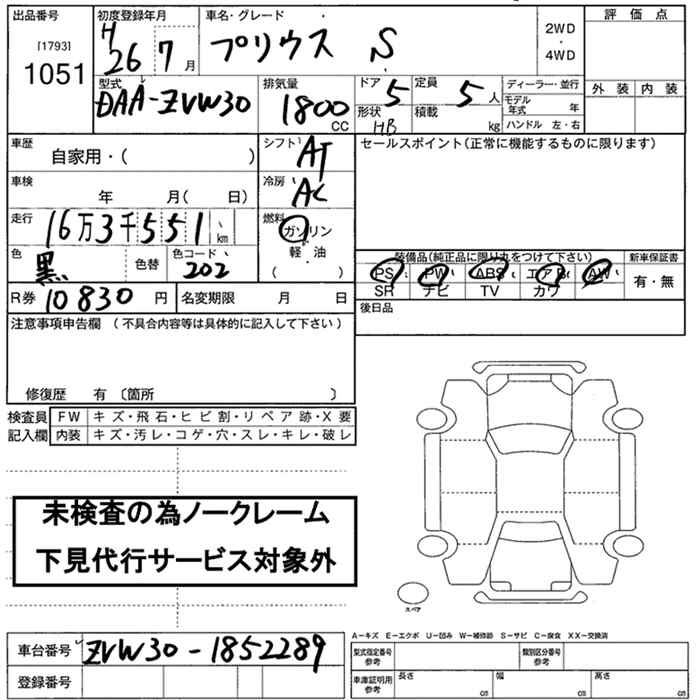 出品番号 初度登録年月 車名・グレード 評価点
[1793]
1051
H 26 7月 プリウス S 2WD・4WD
外装 内装
型式 DAA-ZVW30 排気量 1800 CC ドア 5 定員 5人 ディーラー・並行
形状 HB 積載 kg モデル年式 年
ハンドル 左・右
車歴 自家用・( ) シフト AT セールスポイント(正常に機能するものに限ります)
車検 年 月( 日) 冷房 AC
走行 16万3千551 km 燃料 ガソリン 軽・油 ( )
色 黒 色替 色コード 202
装備品(純品に限り丸をつけて下さい) 新車保証書
PS PW ABS エアB AW 有・無
SR ナビ TV カワ
R券 10830円 名変期限 月 日
後日品
注意事項申告欄 (不具合内容等は具体的に記入して下さい)
修復歴 有 〔箇所 〕
検査員記入欄 FW キズ・飛石・ヒビ割・リペア跡・X要
内装 キズ・汚レ・コゲ・穴・スレ・キレ・破レ
未検査の為ノークレーム
下見代行サービス対象外
スペア
A-キズ E-エクボ U-凹み W-補修跡 S-サビ C-腐食 XX-交換済
車台番号 ZVW30-1852289
登録番号
型式指定番号 参考 類別区分番号 参考
車庫証明用 参考 長さ cm 幅 cm 高さ cm